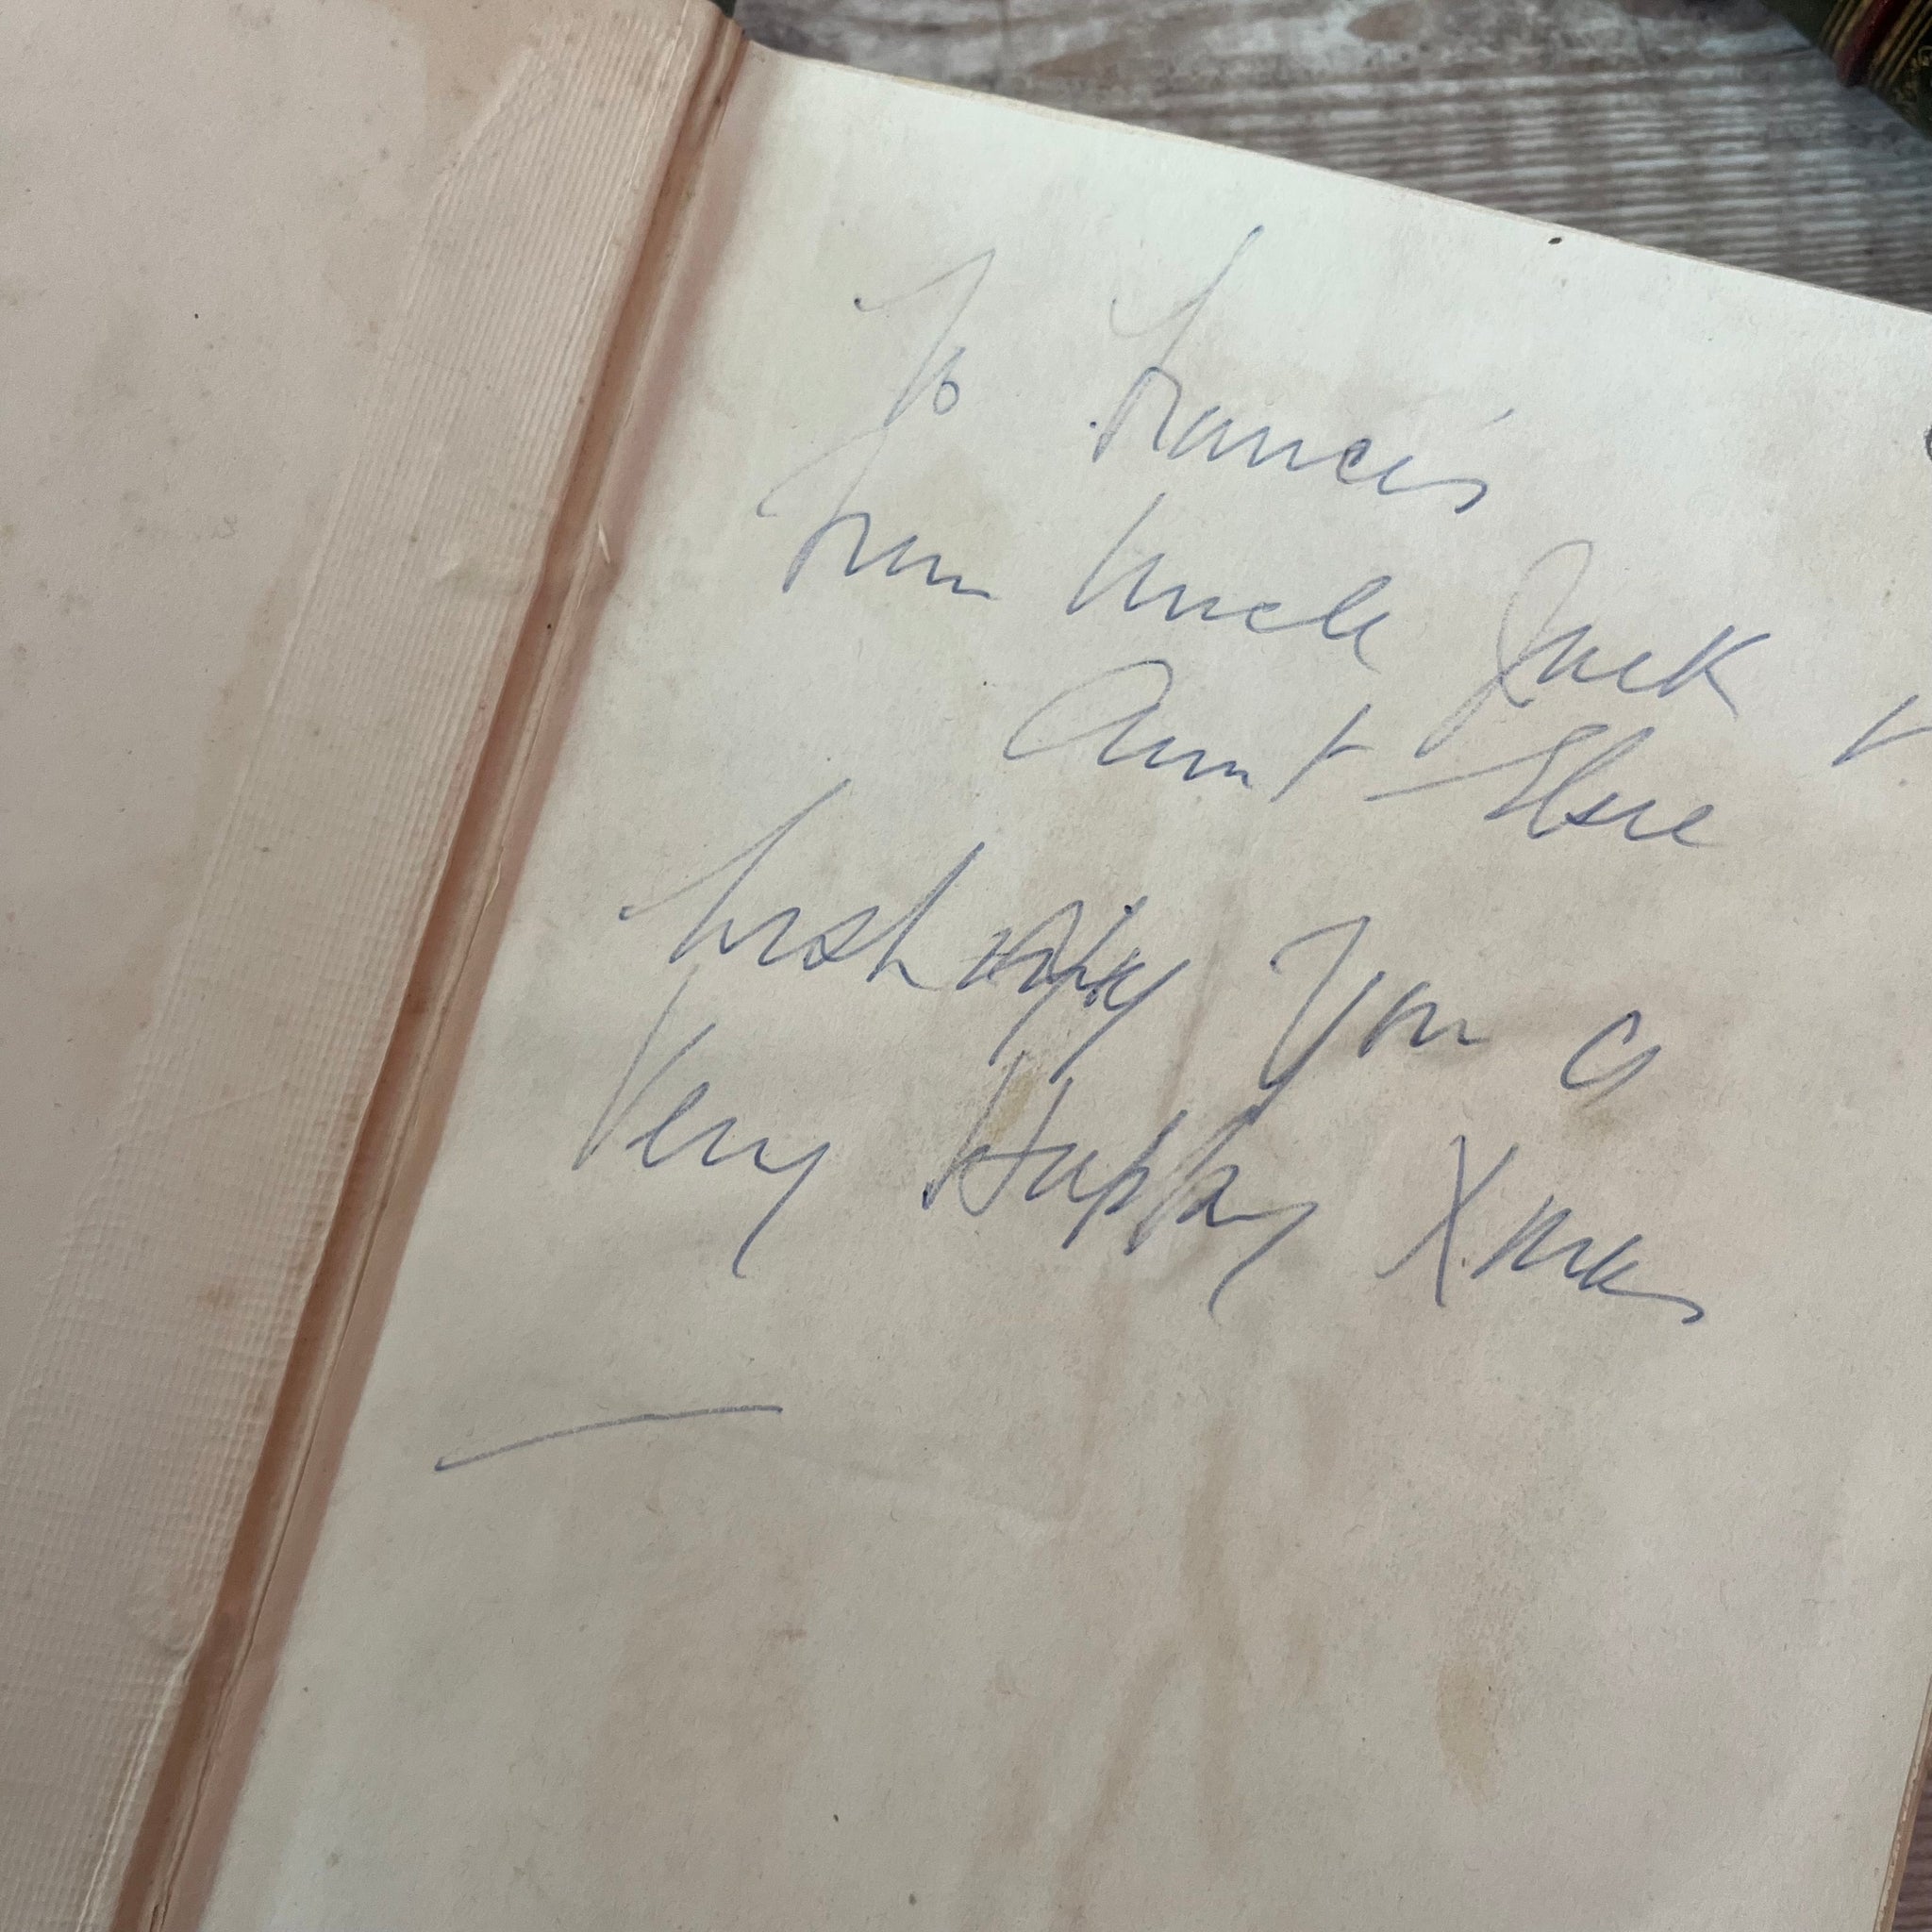 To Francis
From Uncle Jack +
Aunt Elsie
Wishing You a
Very Happy Xmas